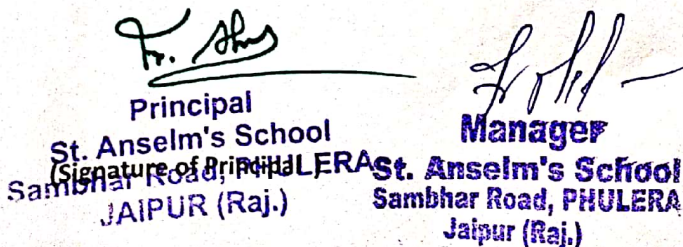 Principal
St. Anselm's School
(Signature of Principal)
Sambhar Road, PHULERA
JAIPUR (Raj.)
Manager
St. Anselm's School
Sambhar Road, PHULERA
Jaipur (Raj.)